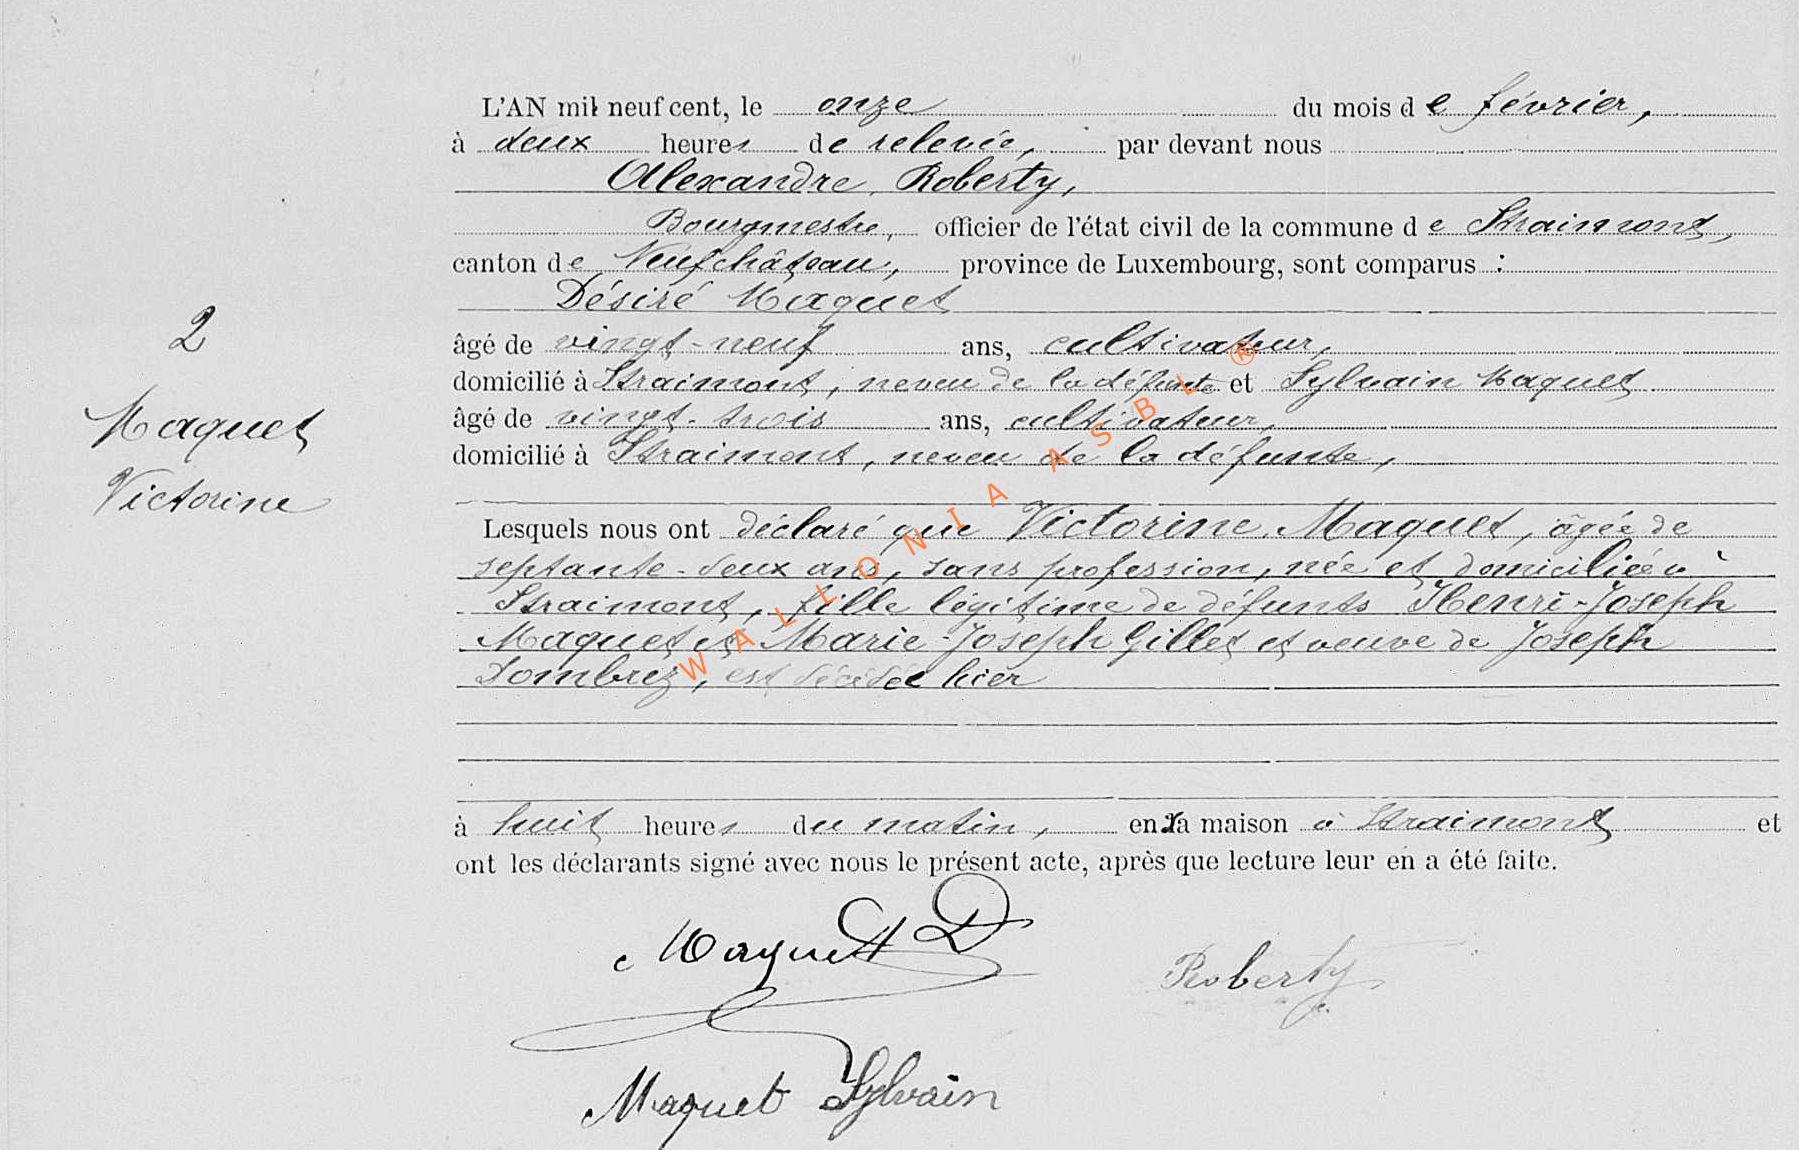 L'AN mil neuf cent, le onze du mois de février,
à deux heures de relevée, par devant nous
Alexandre Roberty,
Bourgmestre, officier de l'état civil de la commune de Straimont,
canton de Neufchâteau, province de Luxembourg, sont comparus :
Désiré Maquet
âgé de vingt-neuf ans, cultivateur,
domicilié à Straimont, neveu de la défunte et Sylvain Maquet.
âgé de vingt-trois ans, cultivateur,
domicilié à Straimont, neveu de la défunte,
2
Maquet
Victorine
Lesquels nous ont déclaré que Victorine Maquet, âgée de
septante-deux ans, sans profession, née et domiciliée à
Straimont, fille légitime de défunts Henri-Joseph
Maquet et Marie-Joseph Gillet et veuve de Joseph
Dombrez, est décédée hier
à huit heures du matin, en sa maison à Straimont et
ont les déclarants signé avec nous le présent acte, après que lecture leur en a été faite.
Maquet D
Roberty
Maquet Sylvain
WALLONIA ASBL ®